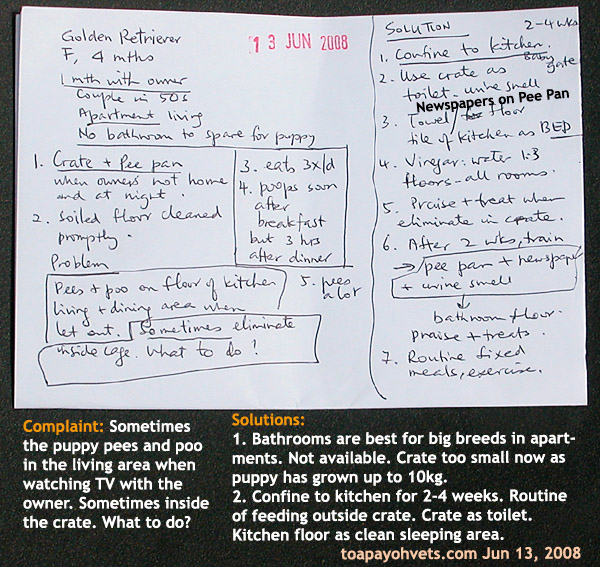 Golden Retriever
F, 4 mths
13 JUN 2008
1 mth with owner
Couple in 50s
Apartment living
No bathroom to spare for puppy
1. Crate + Pee pan
when owners not home
and at night.
2. Soiled floor cleaned
promptly.
3. eats 3x/d
4. poops soon
after
breakfast
but 3 hrs
after dinner
Problem
Pees + poo on floor of kitchen
living + dining area when
let out. Sometimes eliminate
inside cage. What to do?
5. pees
a lot
SOLUTION 2-4 wks
1. Confine to kitchen.
Baby gate
2. Use crate as
toilet - urine smell
Newspapers on Pee Pan
3. Towel / floor
tile of kitchen as BED
4. Vinegar:water 1:3
floors - all rooms.
5. Praise + treat when
eliminate in crate.
6. After 2 wks, train
→ pee pan + newspaper
+ urine smell
↓
bathroom floor.
praise + treats.
7. Routine fixed
meals, exercise.
Complaint: Sometimes
the puppy pees and poo
in the living area when
watching TV with the
owner. Sometimes inside
the crate. What to do?
Solutions:
1. Bathrooms are best for big breeds in apart-
ments. Not available. Crate too small now as
puppy has grown up to 10kg.
2. Confine to kitchen for 2-4 weeks. Routine
of feeding outside crate. Crate as toilet.
Kitchen floor as clean sleeping area.
toapayohvets.com Jun 13, 2008